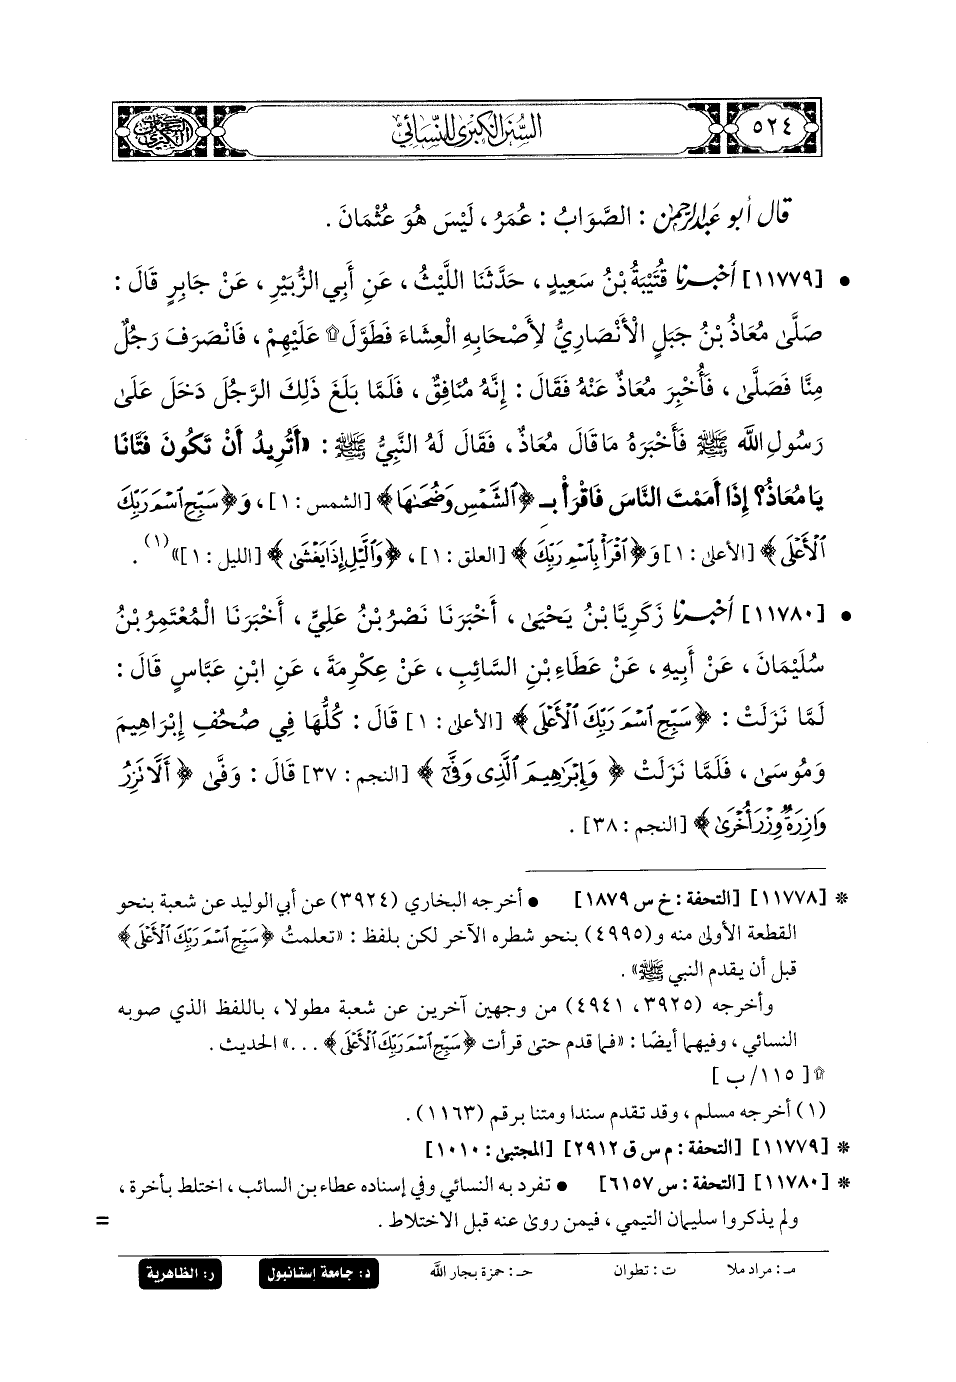 ٥٢٤
السنن الكبرى للنسائي
السنن الكبرى
قال أبو عبد الرحمن : الصَّوَابُ : عُمَرُ ، لَيْسَ هُوَ عُثْمَانَ .
• [١١٧٧٩] أخبرنا قُتَيْبَةُ بْنُ سَعِيدٍ ، حَدَّثَنَا اللَّيْثُ ، عَنِ أَبِي الزُّبَيْرِ ، عَنْ جَابِرٍ قَالَ :
صَلَّىٰ مُعَاذُ بْنُ جَبَلٍ الْأَنْصَارِيُّ لِأَصْحَابِهِ الْعِشَاءَ فَطَوَّلَ۩ عَلَيْهِمْ ، فَانْصَرَفَ رَجُلٌ
مِنَّا فَصَلَّىٰ ، فَأُخْبِرَ مُعَاذٌ عَنْهُ فَقَالَ : إِنَّهُ مُنَافِقٌ ، فَلَمَّا بَلَغَ ذَلِكَ الرَّجُلَ دَخَلَ عَلَىٰ
رَسُولِ اللَّه ﷺ فَأَخْبَرَهُ مَا قَالَ مُعَاذٌ ، فَقَالَ لَهُ النَّبِيُّ ﷺ : «أَتُرِيدُ أَنْ تَكُونَ فَتَّانًا
يَا مُعَاذُ؟ إِذَا أَمَمْتَ النَّاسَ فَاقْرَأْ بِـ ﴿الشَّمْسِ وَضُحَىٰهَا﴾ [الشمس : ١] ، وَ﴿سَبِّحِ ٱسْمَ رَبِّكَ
ٱلْأَعْلَى﴾ [الأعلى : ١] وَ﴿ٱقْرَأْ بِٱسْمِ رَبِّكَ﴾ [العلق : ١] ، ﴿وَٱلَّيْلِ إِذَا يَغْشَىٰ﴾ [الليل : ١]»(١) .
• [١١٧٨٠] أخبرنا زَكَرِيَّا بْنُ يَحْيَىٰ ، أَخْبَرَنَا نَصْرُ بْنُ عَلِيٍّ ، أَخْبَرَنَا الْمُعْتَمِرُ بْنُ
سُلَيْمَانَ ، عَنْ أَبِيهِ ، عَنْ عَطَاءِ بْنِ السَّائِبِ ، عَنْ عِكْرِمَةَ ، عَنِ ابْنِ عَبَّاسٍ قَالَ :
لَمَّا نَزَلَتْ : ﴿سَبِّحِ ٱسْمَ رَبِّكَ ٱلْأَعْلَى﴾ [الأعلى : ١] قَالَ : كُلُّهَا فِي صُحُفِ إِبْرَاهِيمَ
وَمُوسَىٰ ، فَلَمَّا نَزَلَتْ ﴿وَإِبْرَٰهِيمَ ٱلَّذِى وَفَّىٰٓ﴾ [النجم : ٣٧] قَالَ : وَفَّىٰ ﴿أَلَّا تَزِرُ
وَازِرَةٌ وِزْرَ أُخْرَىٰ﴾ [النجم : ٣٨] .
* [١١٧٧٨] [التحفة : خ س ١٨٧٩] • أخرجه البخاري (٣٩٢٤) عن أبي الوليد عن شعبة بنحو
القطعة الأولى منه و(٤٩٩٥) بنحو شطره الآخر لكن بلفظ : «تعلمتُ ﴿سَبِّحِ ٱسْمَ رَبِّكَ ٱلْأَعْلَى﴾
قبل أن يقدم النبي ﷺ» .
وأخرجه (٣٩٢٥، ٤٩٤١) من وجهين آخرين عن شعبة مطولا ، باللفظ الذي صوبه
النسائي ، وفيهما أيضًا : «فما قدم حتى قرأت ﴿سَبِّحِ ٱسْمَ رَبِّكَ ٱلْأَعْلَى﴾ ...» الحديث .
۩ [ ١١٥/ ب ]
(١) أخرجه مسلم ، وقد تقدم سندا ومتنا برقم (١١٦٣) .
* [١١٧٧٩] [التحفة : م س ق ٢٩١٢] [المجتبى : ١٠١٠]
* [١١٧٨٠] [التحفة : س ٦١٥٧] • تفرد به النسائي وفي إسناده عطاء بن السائب ، اختلط بأخرة ،
ولم يذكروا سليمان التيمي ، فيمن روى عنه قبل الاختلاط . =
مـ : مراد ملا ت : تطوان حـ : حمزة بجار اللَّه د: جامعة إستانبول ر: الظاهرية